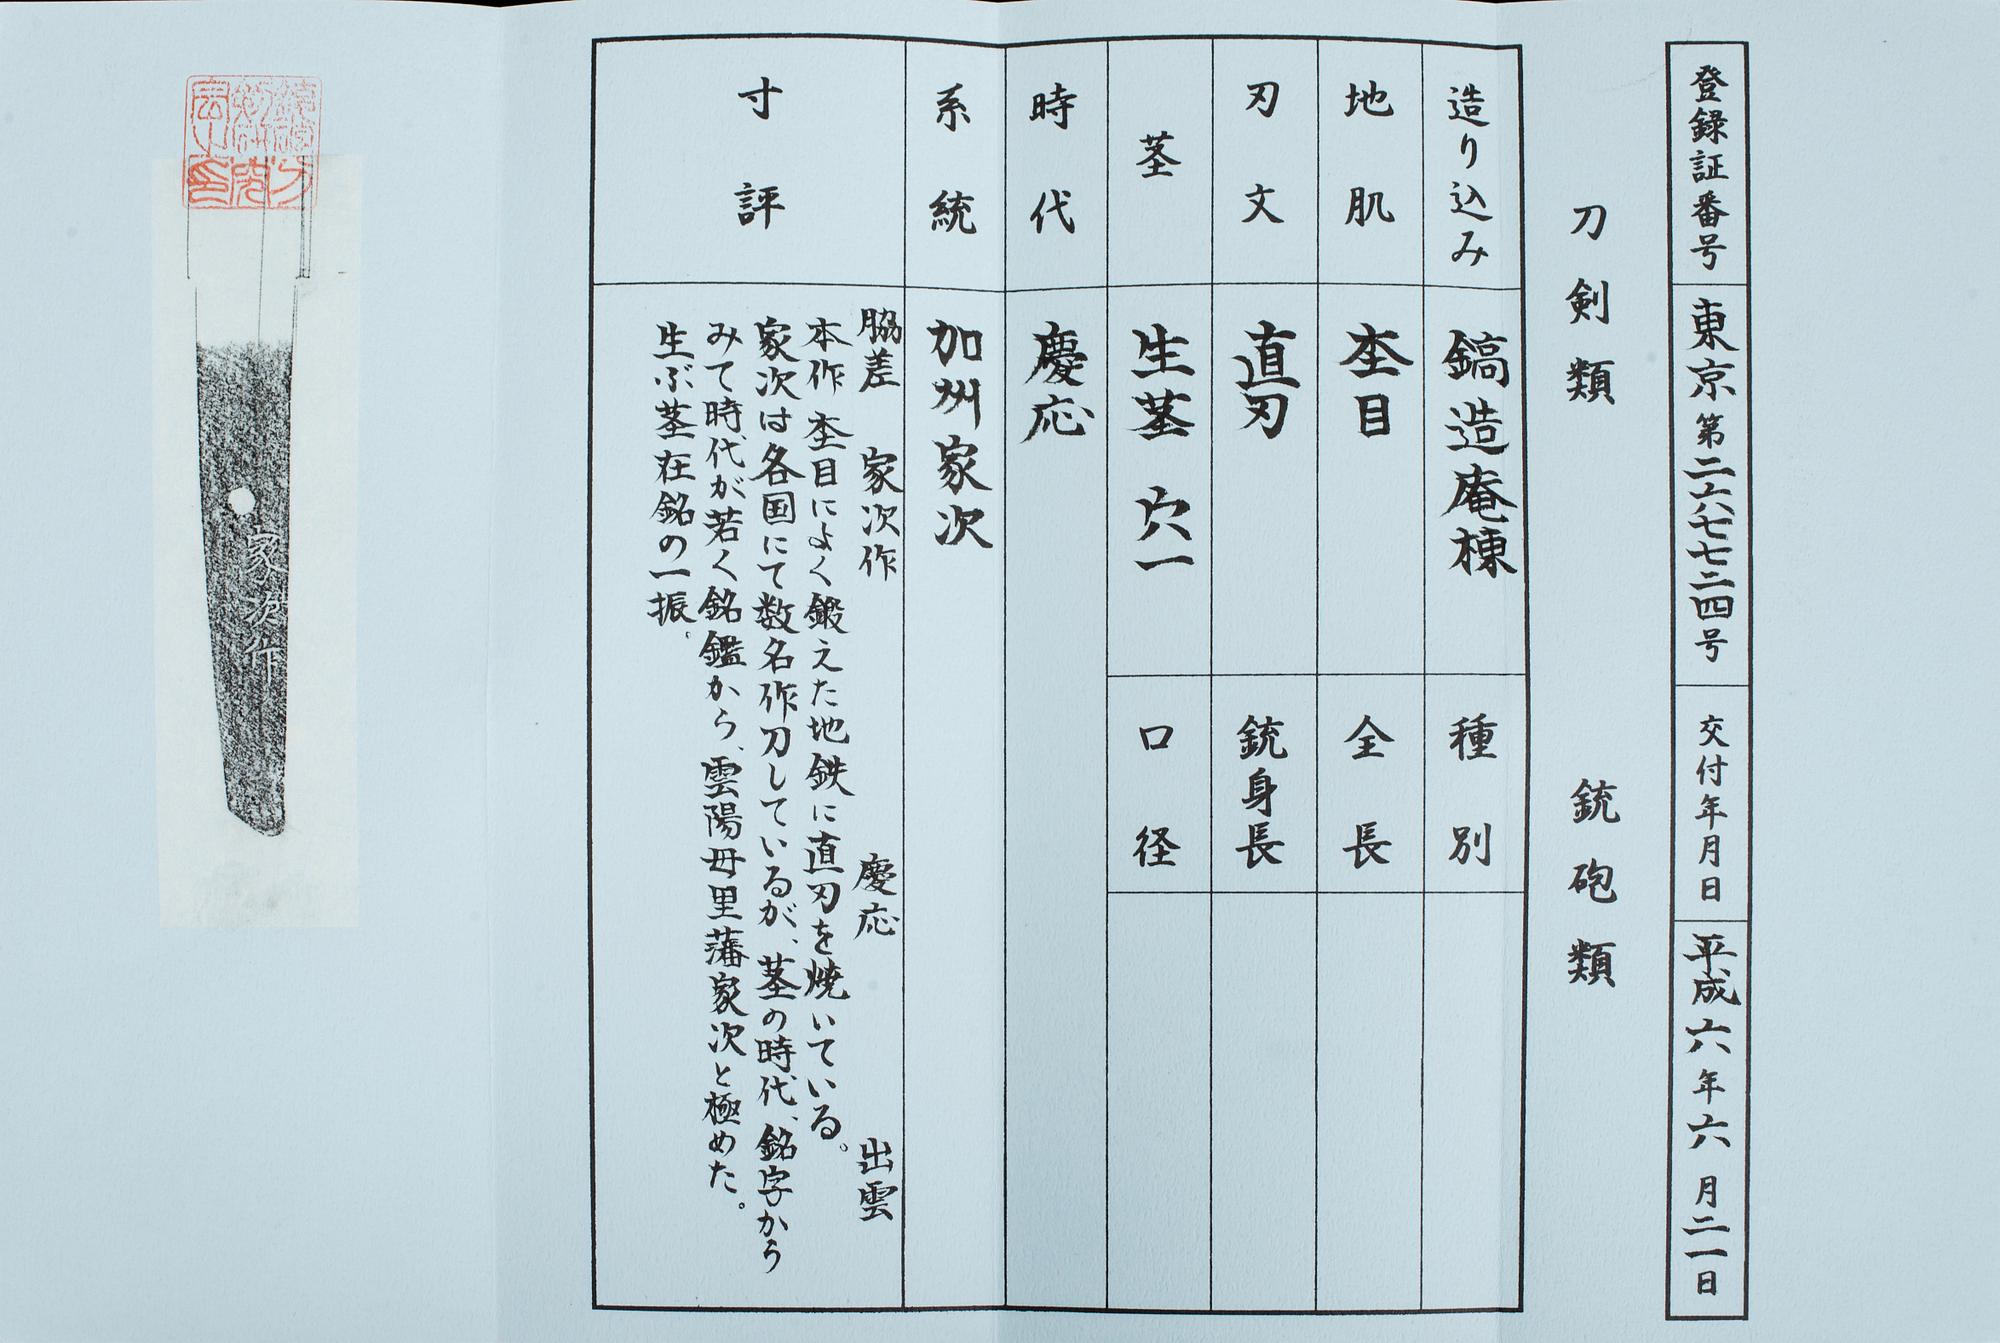 登録証番号 東京第二六七七二四号 交付年月日 平成六年六月二一日
刀剣類 銃砲類
造り込み 鎬造庵棟 種別
地肌 杢目 全長
刃文 直刃 銃身長
茎 生茎 穴一 口径
時代 慶応
系統 加州家次
寸評
脇差 家次作 慶応 出雲
本作杢目によく鍛えた地鉄に直刃を焼いている。
家次は各国にて数名作刀しているが、茎の時代、銘字から
みて時代が若く銘鑑から、雲陽母里藩家次と極めた。
生ぶ茎在銘の一振。
家次作